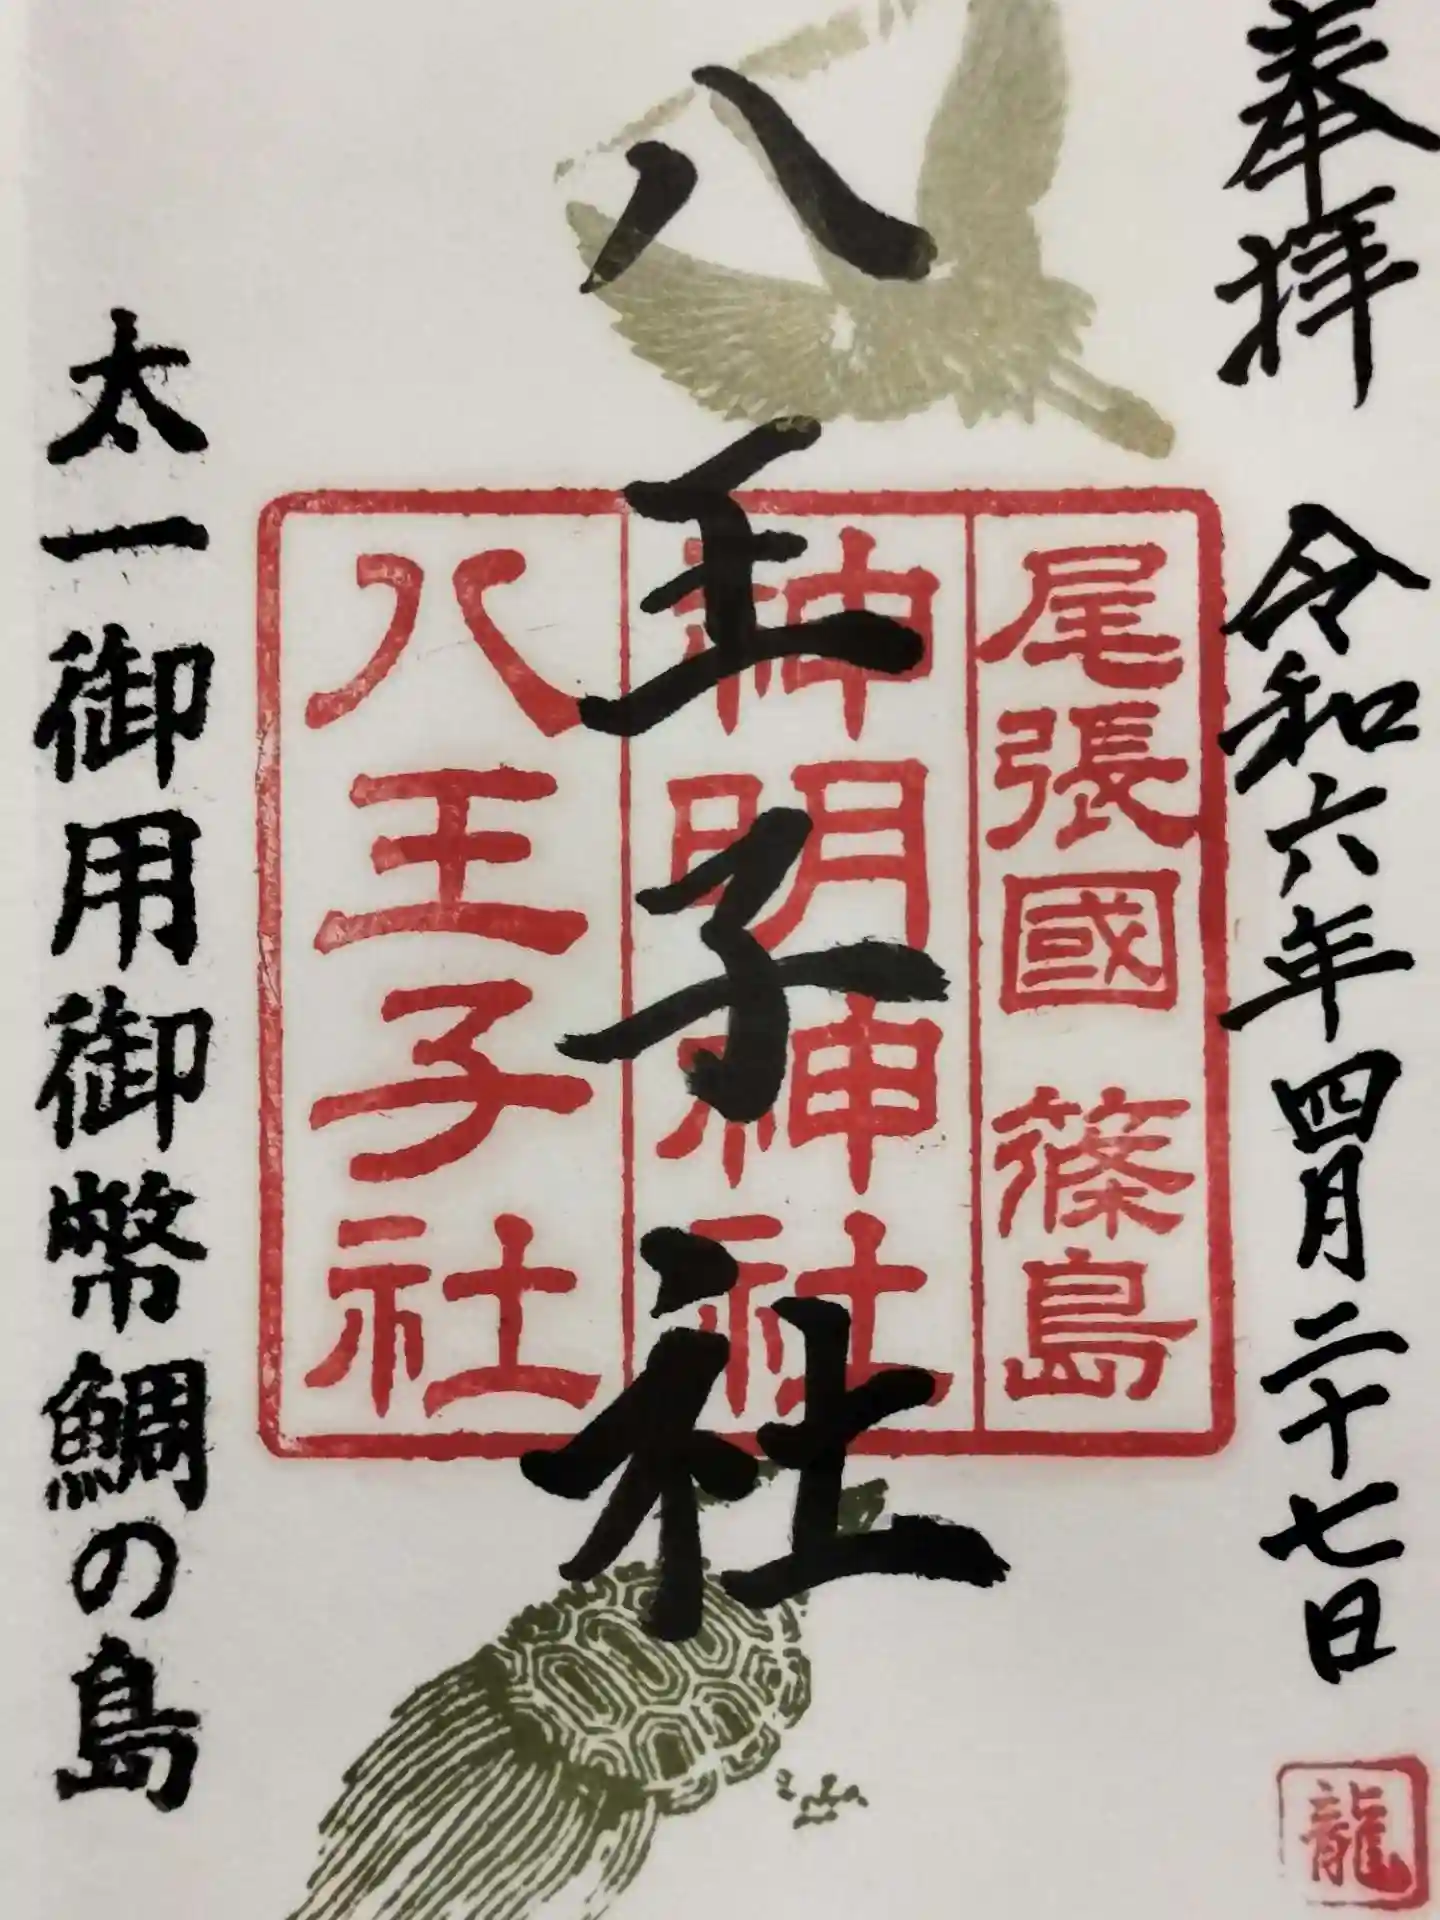 奉拝 令和六年四月二十七日
龍
八王子社
尾張國 篠島
神明神社
八王子社
太一御用御幣鯛の島